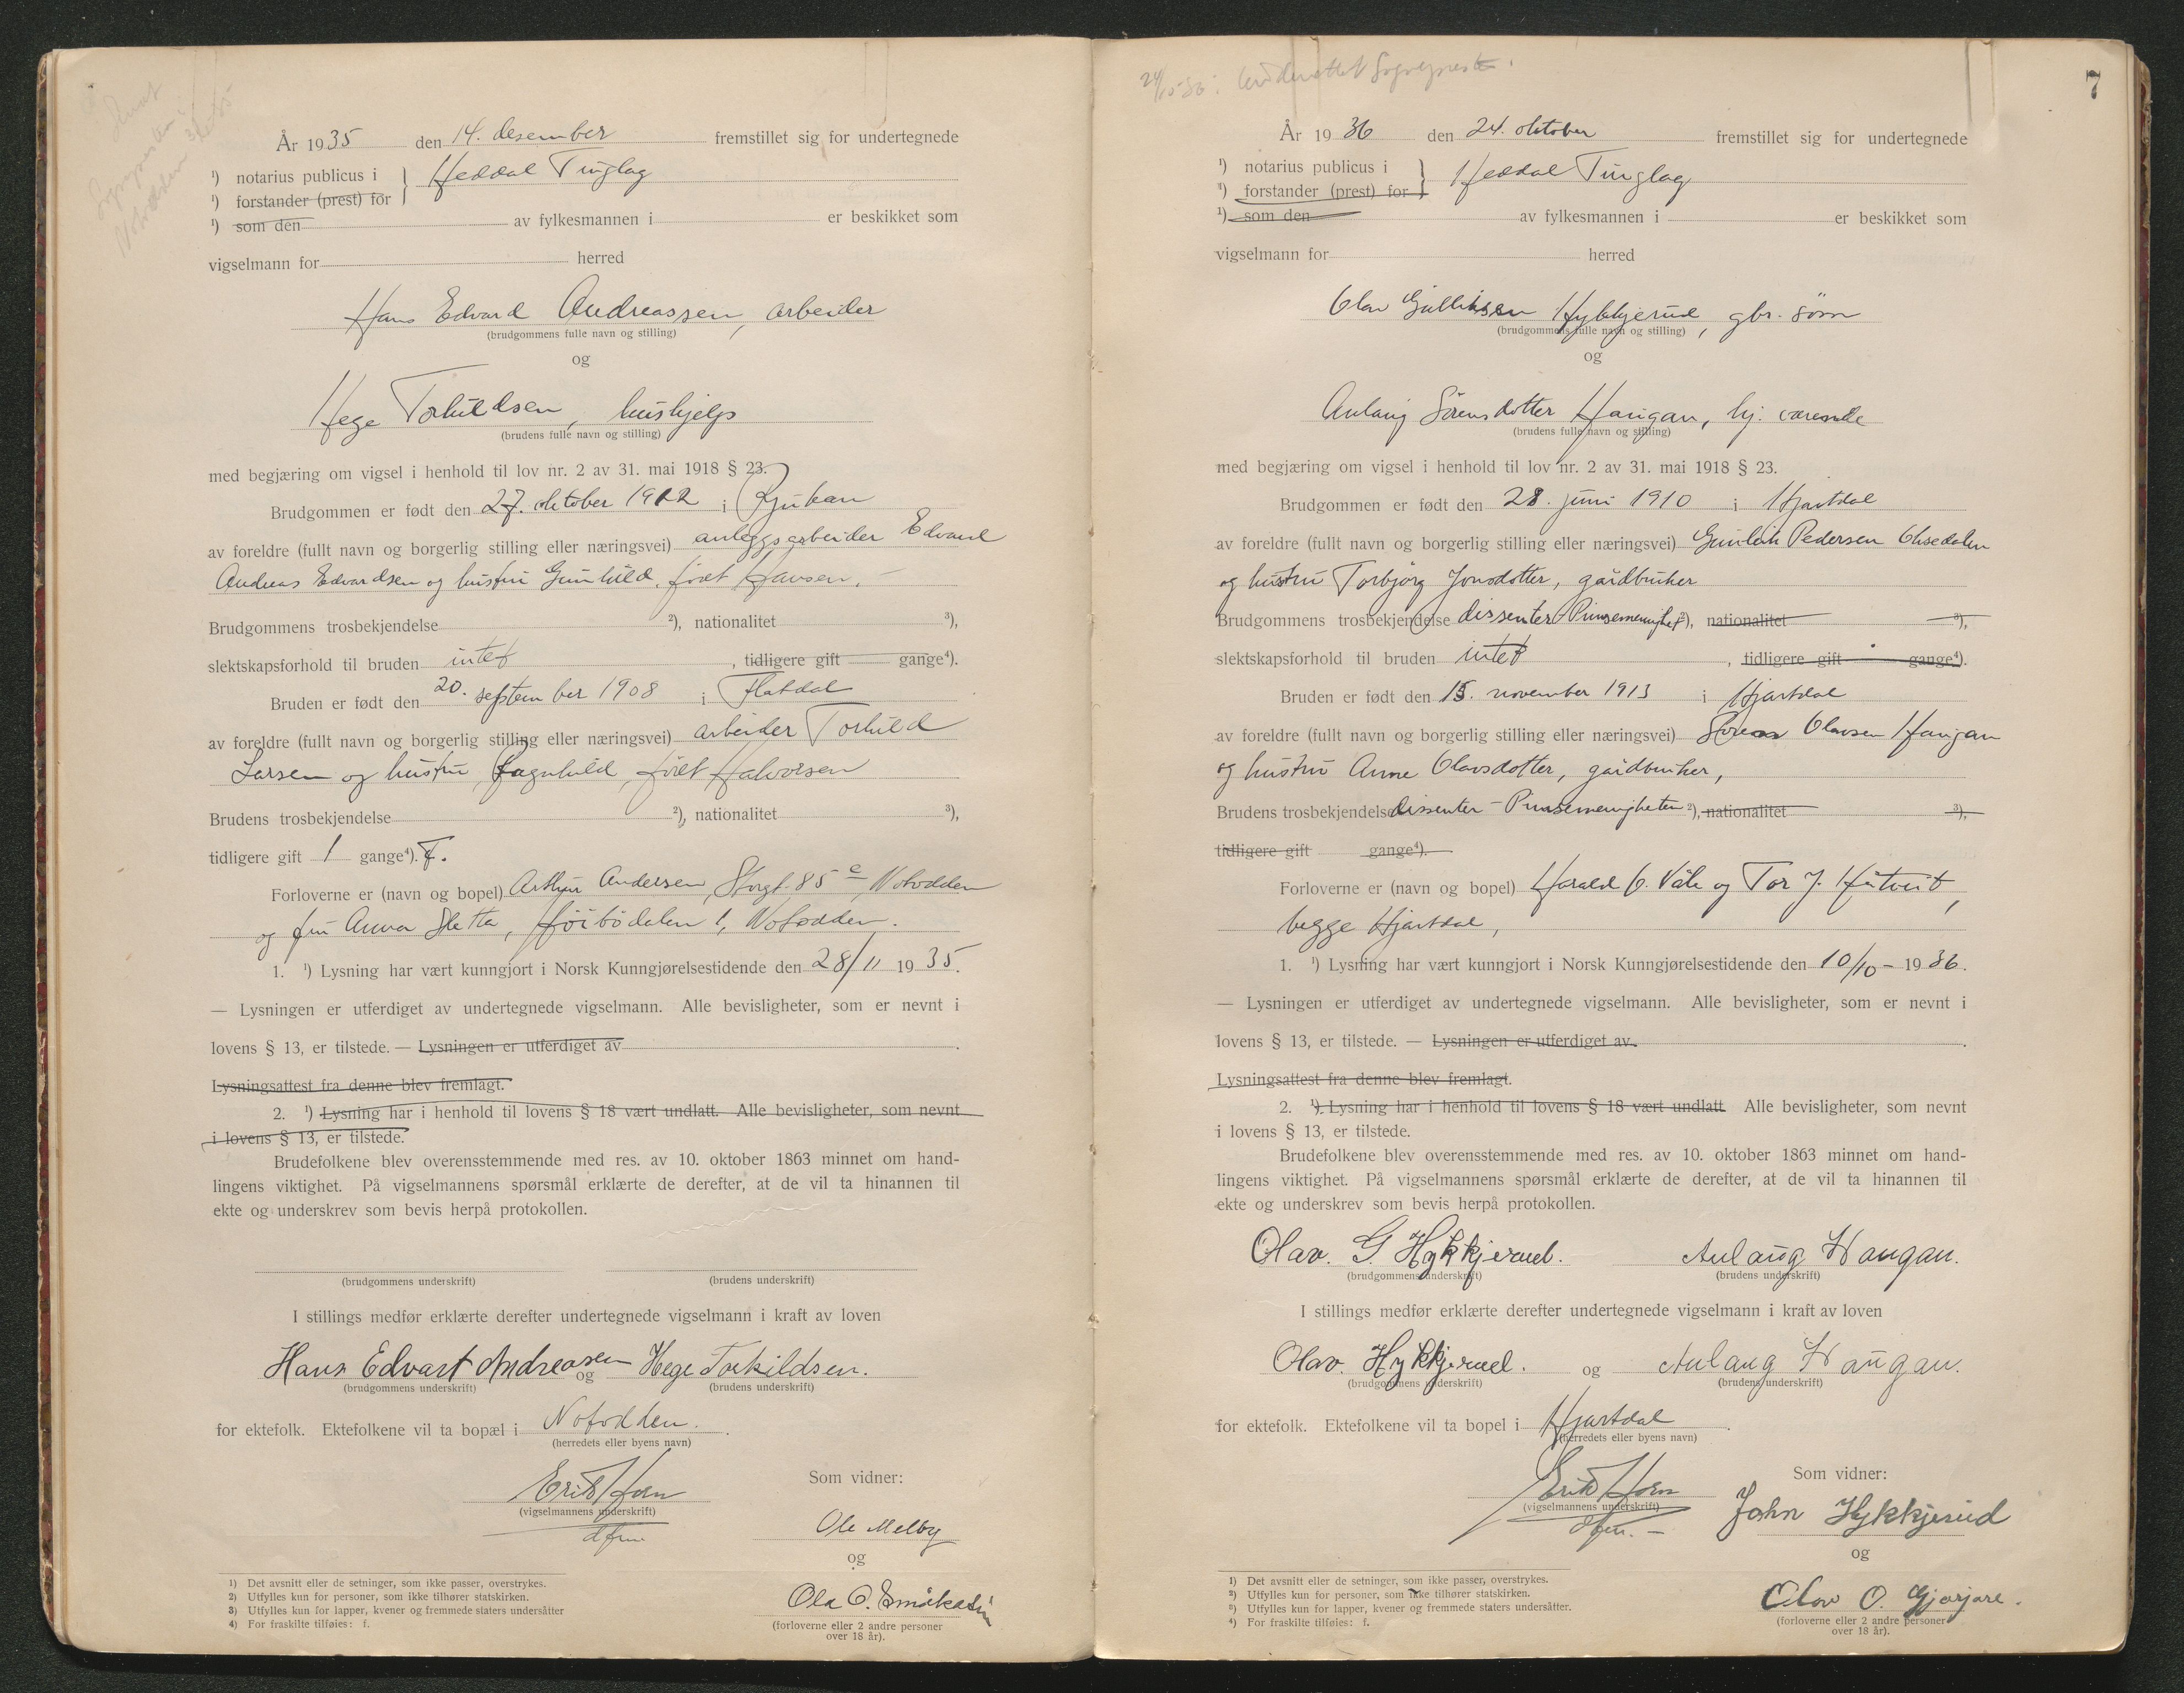 År 1935 den 14. desember fremstillet sig for undertegnede
¹) notarius publicus i } Heddal Tinglag
¹) forstander (prest) for
¹) som den av fylkesmannen i er beskikket som
vigselmann for herred
Hans Edvard Andreassen, arbeider
(brudgommens fulle navn og stilling)
og
Hege Torkildsen, hushjelp
(brudens fulle navn og stilling)
med begjæring om vigsel i henhold til lov nr. 2 av 31. mai 1918 § 23.
Brudgommen er født den 27. oktober 1912 i Rjukan
av foreldre (fullt navn og borgerlig stilling eller næringsvei) anleggsarbeider Edvard
Andreas Edvardsen og hustru Gunhild, født Hansen.
Brudgommens trosbekjendelse ²), nationalitet ³),
slektskapsforhold til bruden intet, tidligere gift gange⁴).
Bruden er født den 20. september 1908 i Flatdal
av foreldre (fullt navn og borgerlig stilling eller næringsvei) arbeider Torkild
Larsen og hustru Ragnhild, født Halvorsen
Brudens trosbekjendelse ²), nationalitet ³),
tidligere gift 1 gange⁴). F.
Forloverne er (navn og bopel) Arthur Andersen, Storgt. 85 c, Notodden
og fru Anna Sletta, Notodden.
1. ¹) Lysning har vært kunngjort i Norsk Kunngjørelsestidende den 28/11 1935.
— Lysningen er utferdiget av undertegnede vigselmann. Alle bevisligheter, som er nevnt i
lovens § 13, er tilstede. — Lysningen er utferdiget av
Lysningsattest fra denne blev fremlagt.
2. ¹) Lysning har i henhold til lovens § 18 vært undlatt. Alle bevisligheter, som nevnt
i lovens § 13, er tilstede.
Brudefolkene blev overensstemmende med res. av 10. oktober 1863 minnet om hand-
lingens viktighet. På vigselmannens spørsmål erklærte de derefter, at de vil ta hinannen til
ekte og underskrev som bevis herpå protokollen.
(brudgommens underskrift) (brudens underskrift)
I stillings medfør erklærte derefter undertegnede vigselmann i kraft av loven
Hans Edvart Andreasen og Hege Torkildsen.
(brudgommens underskrift) (brudens underskrift)
for ektefolk. Ektefolkene vil ta bopæl i Notodden.
(herredets eller byens navn)
Erik Horn
(vigselmannens underskrift)
dfm
Som vidner:
Ole Melby
og
Ola O. Småkasin
(forloverne eller 2 andre personer
over 18 år).
1) Det avsnitt eller de setninger, som ikke passer, overstrykes.
2) Utfylles kun for personer, som ikke tilhører statskirken.
3) Utfylles kun for lapper, kvener og fremmede staters undersåtter
4) For fraskilte tilføies: f.
7
År 1936 den 24. oktober fremstillet sig for undertegnede
¹) notarius publicus i } Heddal Tinglag
¹) forstander (prest) for
¹) som den av fylkesmannen i er beskikket som
vigselmann for herred
Olav Gulliksen Hykkjerud, gbr. sønn
(brudgommens fulle navn og stilling)
og
Aulaug Sörensdotter Haugan, hj. værende
(brudens fulle navn og stilling)
med begjæring om vigsel i henhold til lov nr. 2 av 31. mai 1918 § 23.
Brudgommen er født den 28. juni 1910 i Hjartdal
av foreldre (fullt navn og borgerlig stilling eller næringsvei) Gunleik Pedersen
og hustru Torbjörg Jonsdotter, gårdbruker
Brudgommens trosbekjendelse dissenter Pinsemenighet ²), nationalitet ³),
slektskapsforhold til bruden intet, tidligere gift gange⁴).
Bruden er født den 15. november 1913 i Hjartdal
av foreldre (fullt navn og borgerlig stilling eller næringsvei) Sören Olavsen Haugan
og hustru Anne Olavsdotter, gårdbruker,
Brudens trosbekjendelse dissenter - Pinsemenigheten ²), nationalitet ³),
tidligere gift gange⁴).
Forloverne er (navn og bopel) Harald O. Våle og Tor J. Hütveit,
begge Hjartdal,
1. ¹) Lysning har vært kunngjort i Norsk Kunngjørelsestidende den 10/10 - 1936.
— Lysningen er utferdiget av undertegnede vigselmann. Alle bevisligheter, som er nevnt i
lovens § 13, er tilstede. — Lysningen er utferdiget av
Lysningsattest fra denne blev fremlagt.
2. ¹) Lysning har i henhold til lovens § 18 vært undlatt. Alle bevisligheter, som nevnt
i lovens § 13, er tilstede.
Brudefolkene blev overensstemmende med res. av 10. oktober 1863 minnet om hand-
lingens viktighet. På vigselmannens spørsmål erklærte de derefter, at de vil ta hinannen til
ekte og underskrev som bevis herpå protokollen.
Olav. G Hykkjerud. Aulaug Haugan.
(brudgommens underskrift) (brudens underskrift)
I stillings medfør erklærte derefter undertegnede vigselmann i kraft av loven
Olav. Hykkjerud. og Aulaug Haugan.
(brudgommens underskrift) (brudens underskrift)
for ektefolk. Ektefolkene vil ta bopel i Hjartdal
(herredets eller byens navn)
Erik Horn
(vigselmannens underskrift)
dfm. —
Som vidner:
John Hykkjerud
og
Olav O. Gjærjare.
(forloverne eller 2 andre personer
over 18 år).
¹) Det avsnitt eller de setninger, som ikke passer, overstrykes.
²) Utfylles kun for personer, som ikke tilhører statskirken.
³) Utfylles kun for lapper, kvener og fremmede staters undersåtter.
⁴) For fraskilte tilføies: f.